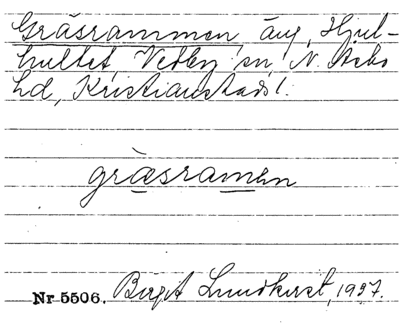 Gräsrammen, äng, Hjul-
hultet, Vedby sn, N. Åsbo
hd, Kristianstads l.
gräsramen
Nr 5506. Birgit Lundkvist, 1937.